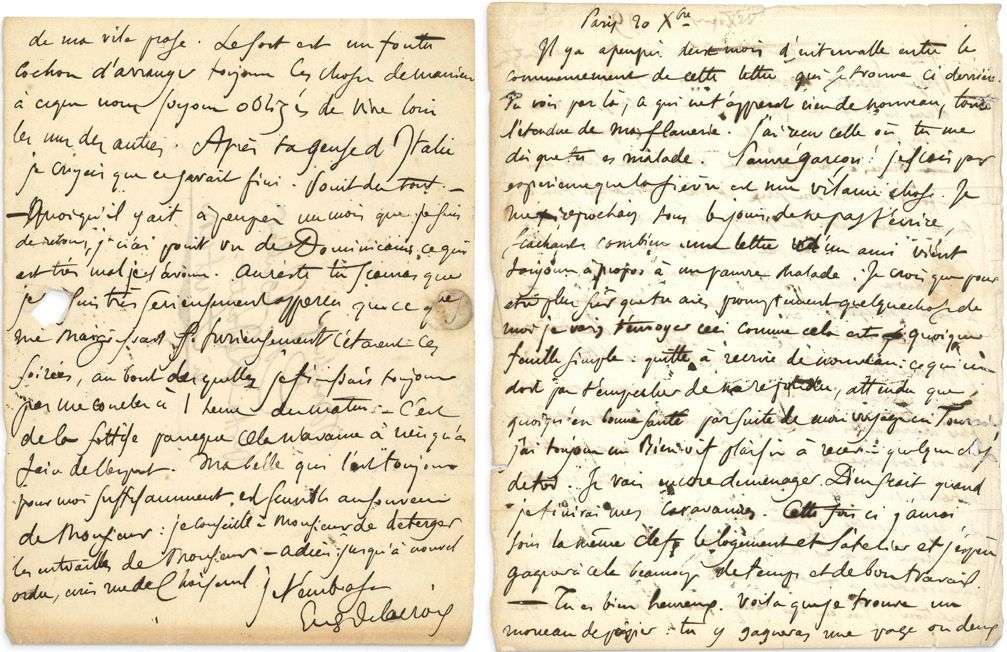 de ma vile prose. Le sort est un foutu
cochon d'arranger toujours les choses de manière
à ce que nous soyons obligés de vivre loin
les uns des autres. Après ta gueuse d'Italie
je croyais que ce serait fini. Point du tout. —
— Quoiqu'il y ait à peu près un mois que je suis
de retour, je n'ai point vu de Dominicains, ce qui
est très mal je l'avoue. Au reste tu sauras que
je suis très sérieusement apperçu que ce qui
me si furieusement c'étaient ces
soirées, au bout desquelles je finissais toujours
par me coucher à 1 heure du matin. — C'est
de la sottise parceque cela n'avance à rien qu'à
de l'esprit. Ma belle qui l'est toujours
pour moi suffisamment, est sensible au souvenir
de Monsieur : je conseille à Monsieur de déterger
les entrailles de Monsieur — adieu jusqu'à nouvel
ordre, rue de Choiseul. J t'embrasse
Eug Delacroix
Paris 20 Xbre
Il y a à peu près deux mois d'intervalle entre le
commencement de cette lettre qui se trouve ci derrière.
Tu vois par là, ce qui ne t'apprend rien de nouveau, toute
l'étendue de ma flanerie. J'ai reçu celle où tu me
dis que tu es malade. Pauvre garçon ! je sais par
expérience que la fièvre est une vilaine chose. Je
me reprochais tous les jours de ne pas t'écrire,
sachant combien une lettre d'un ami vient
toujours à propos à un pauvre malade. Je crois que pour
être plus sûr que tu aies promptement quelque chose de
moi je vais t'envoyer ceci comme cela est quoique
feuille simple : quitte à récrire de nouveau : ce qui ne
doit pas t'empêcher de me répondre, attendu que
quoiqu'en bonne santé par suite de mon voyage en Touraine
j'ai toujours un bien vif plaisir à recevoir quelque chose
de toi. Je vais encore déménager. Dieu sait quand
je finirai mes caravanes. Cette fois ci j'aurai
sous la même clef le logement et l'atelier et j'espère
gagner à cela beaucoup de temps et de bon travail
— Tu es bien heureux. Voilà que je trouve un
morceau de papier : tu y gagneras une page ou deux